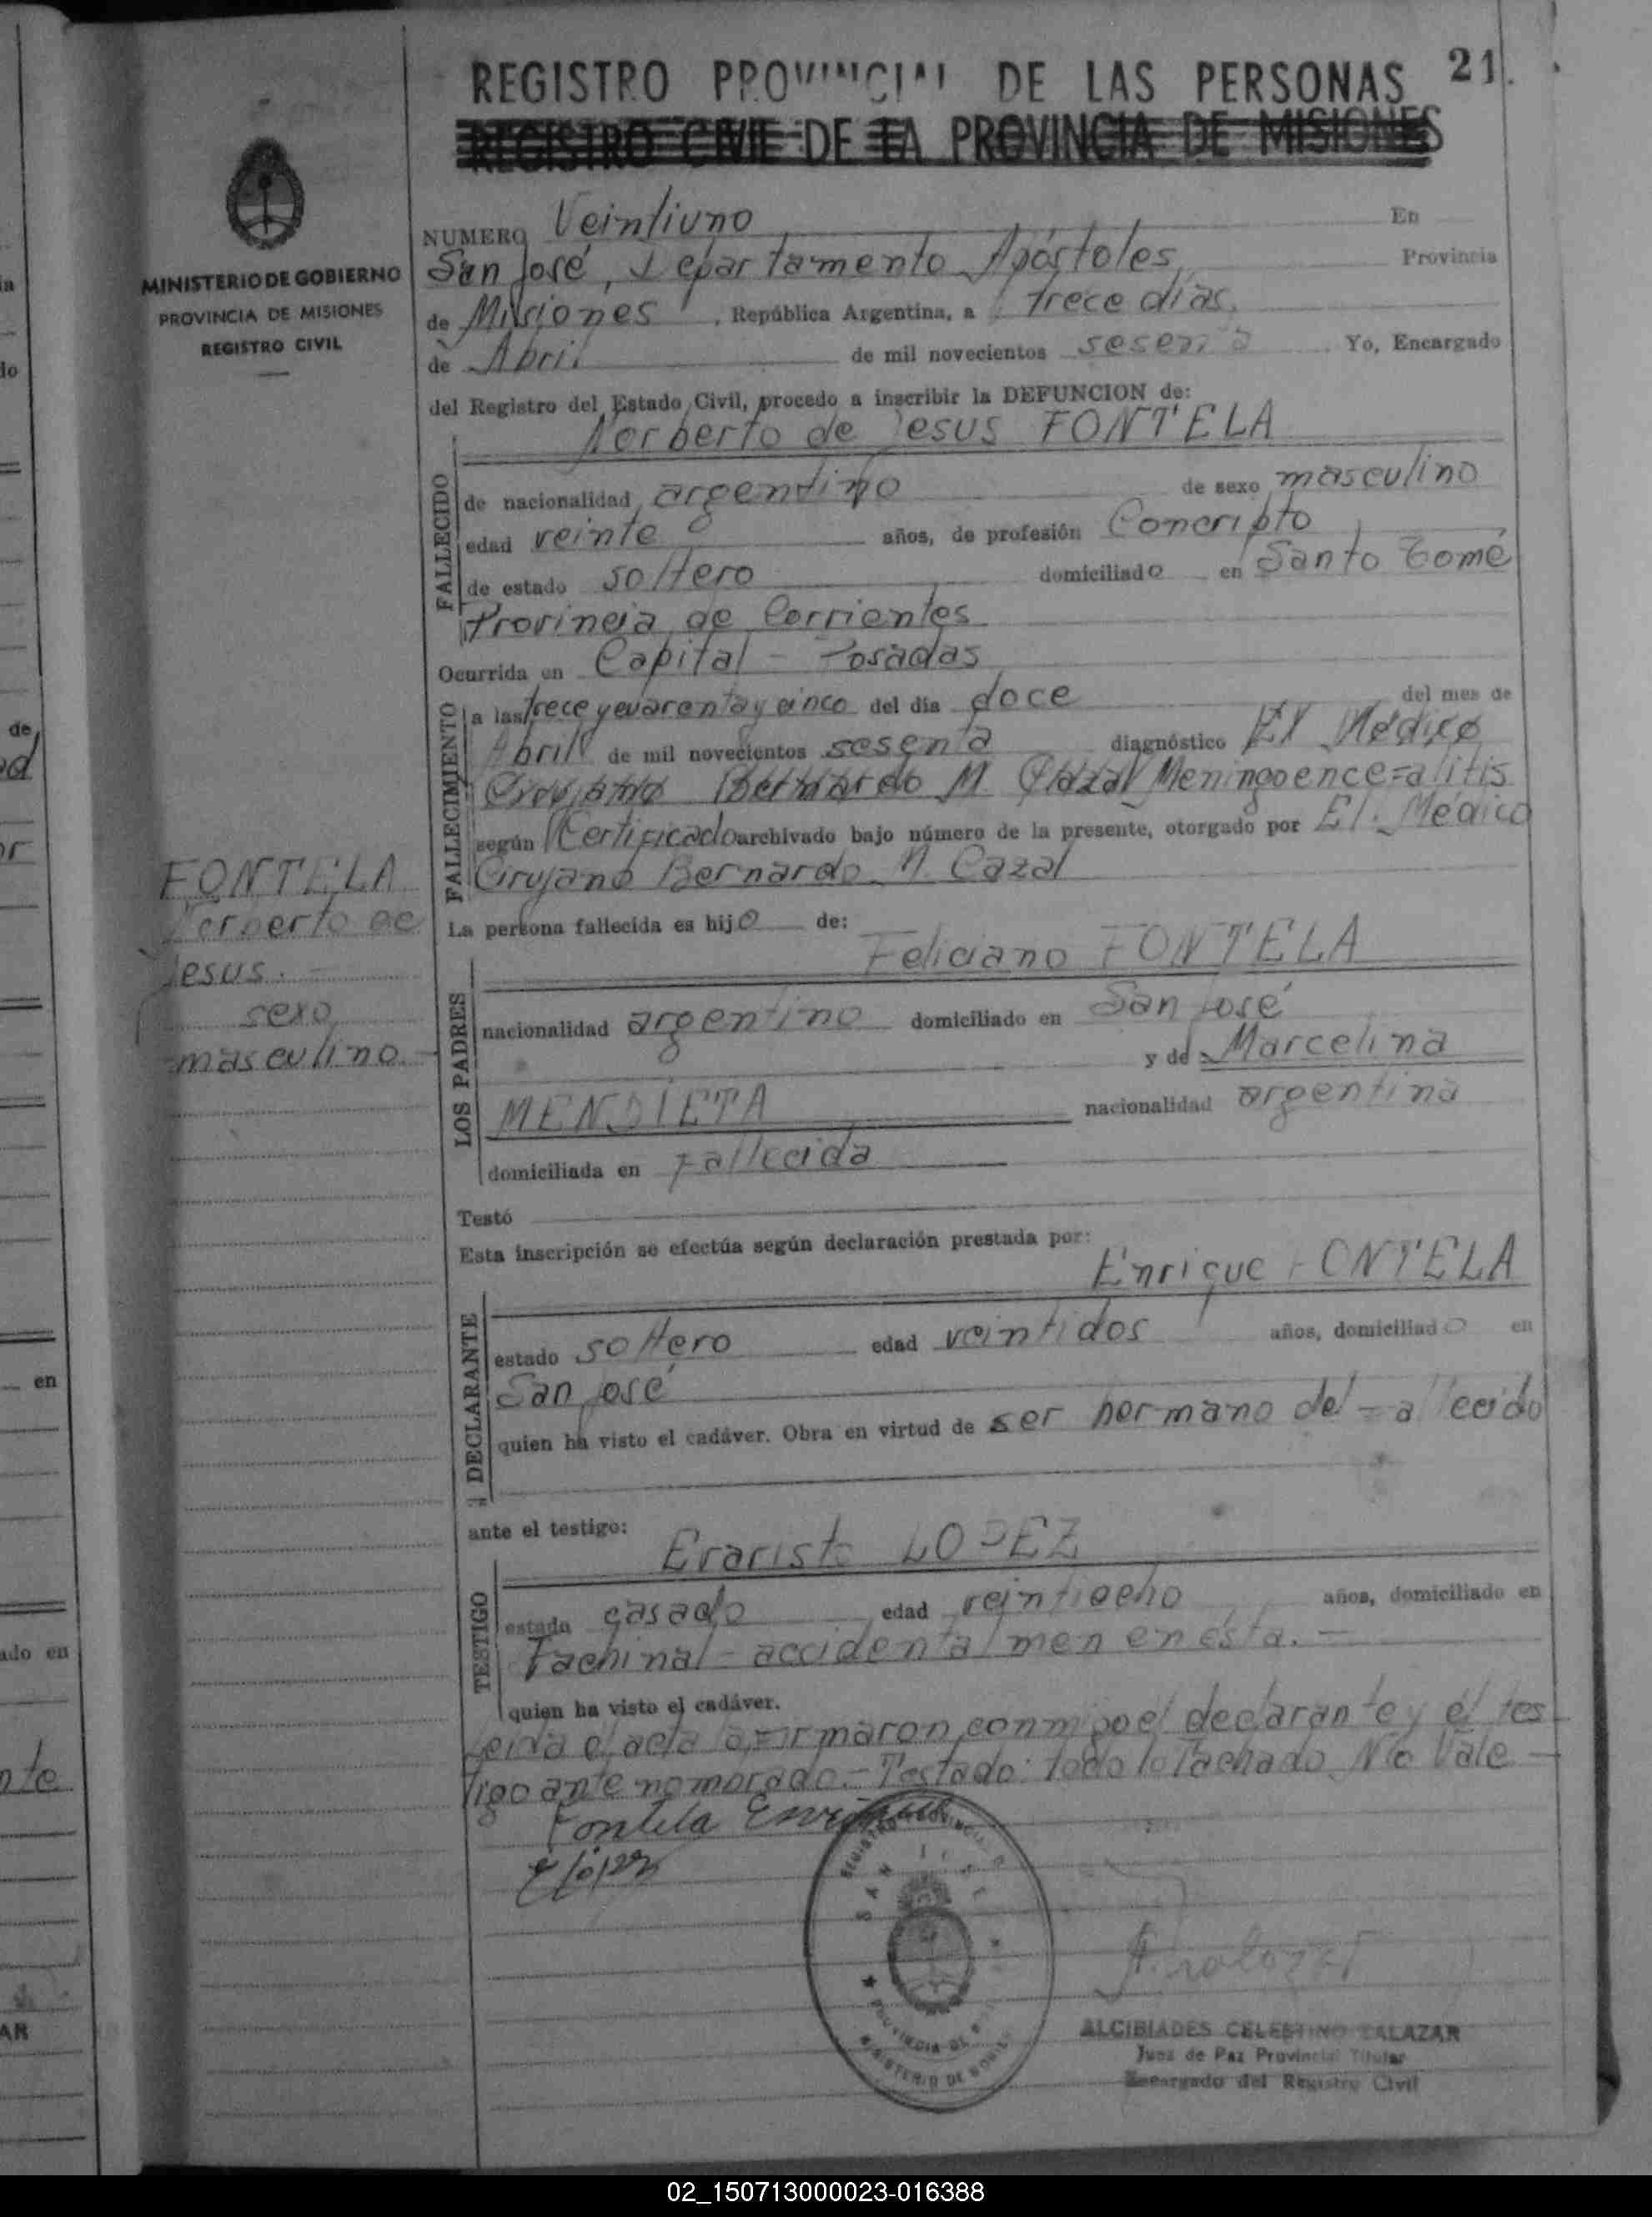 21.
REGISTRO PROVINCIAL DE LAS PERSONAS
REGISTRO CIVIL DE LA PROVINCIA DE MISIONES
MINISTERIO DE GOBIERNO
PROVINCIA DE MISIONES
REGISTRO CIVIL
NUMERO Veintiuno En
San José, Departamento Apóstoles, Provincia
de Misiones, República Argentina, a trece dias
de Abril de mil novecientos sesenta Yo, Encargado
del Registro del Estado Civil, procedo a inscribir la DEFUNCION de:
Norberto de Jesus FONTELA
FALLECIDO
de nacionalidad argentino de sexo masculino
edad veinte años, de profesión Concripto
de estado soltero domiciliado en Santo Tomé
Provincia de Corrientes
Ocurrida en Capital - Posadas
FALLECIMIENTO
a las trece y cuarenta y cinco del día doce del mes de
Abril de mil novecientos sesenta diagnóstico El Médico
Cirujano Bernardo M. Cazal Meningoencefalitis
según Certificado archivado bajo número de la presente, otorgado por El Médico
Cirujano Bernardo M. Cazal
FONTELA
Norberto de
Jesus.-
sexo
masculino
La persona fallecida es hijo de:
Feliciano FONTELA
LOS PADRES
nacionalidad argentino domiciliado en San José
y de Marcelina
MENDIETA nacionalidad argentina
domiciliada en Fallecida
Testó
Esta inscripción se efectúa según declaración prestada por:
Enrique FONTELA
DECLARANTE
estado soltero edad veintidos años, domiciliado en
San José
quien ha visto el cadáver. Obra en virtud de ser hermano del fallecido
ante el testigo:
Evaristo LOPEZ
TESTIGO
estado casado edad veintiocho años, domiciliado en
Fachinal - accidentalmen en ésta.-
quien ha visto el cadáver.
Leída el acta la firmaron conmigo el declarante y el tes
tigo ante nomorado.- Testado: todo lo tachado No Vale-
Fontela Enrique
E López
REGISTRO PROVINCIAL
SAN JOSE
PROVINCIA DE MISIONES
MINISTERIO DE GOBIERNO
ALCIBIADES CELESTINO SALAZAR
Juez de Paz Provincial Titular
Encargado del Registro Civil
02_150713000023-016388